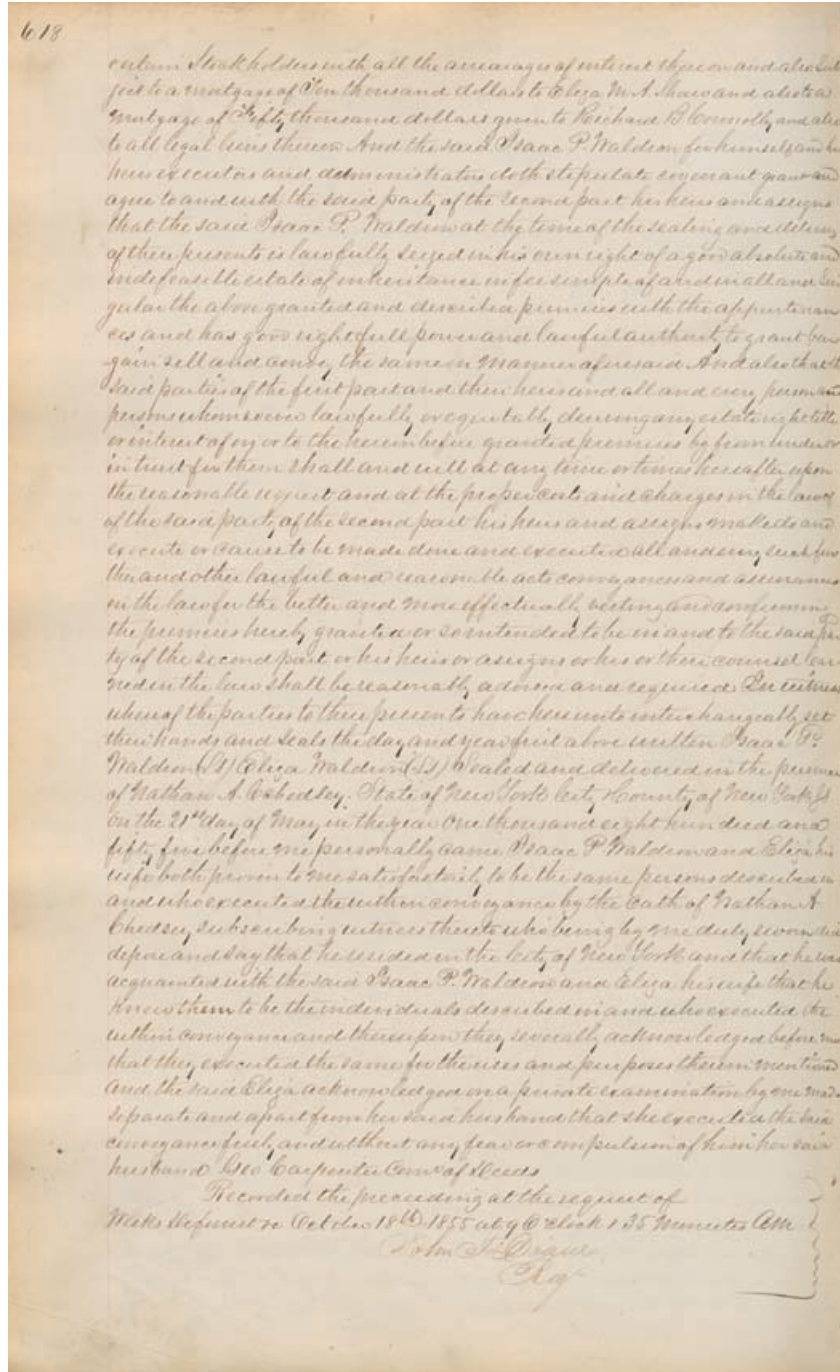 618
certain Stockholders with all the arrearages of interest thereon and also Sub
ject to a mortgage of Ten thousand dollars to Eliza M. A. Shaw and also to a
Mortgage of Fifty thousand dollars given to Richard B Connolly and also
to all legal liens thereon And the said Isaac P. Waldron for himself and
heirs executors and administrators doth stipulate covenant grant and
agree to and with the said party of the second part his heirs and assigns
that the said Isaac P. Waldron at the time of the sealing and delivery
of these presents is lawfully seized in his own right of a good absolute and
indefeasible estate of inheritance in fee simple of and in all and Sin
gular the above granted and described premises with the appurtenan
ces and has good right full power and lawful authority to grant bar
gain sell and convey the same in manner aforesaid And also that the
said parties of the first part and their heirs and all and every person and
persons whomsoever lawfully or equitably deriving any estate right title
or interest of in or to the hereinbefore granted premises by from under or
in trust for them shall and will at any time or times hereafter upon
the reasonable request and at the proper costs and charges in the law
of the said party of the second part his heirs and assigns make do and
execute or cause to be made done and executed all and every such fur
ther and other lawful and reasonable acts conveyances and assurances
in the law for the better and more effectually vesting and confirming
the premises hereby granted or so intended to be in and to the said par
ty of the second part or his heirs or assigns or his or their counsel lear
ned in the law shall be reasonably advised and required In witness
whereof the parties to these presents have hereunto interchangeably set
their hands and seals the day and year first above written Isaac P.
Waldron (LS) Eliza Waldron (LS) Sealed and delivered in the presence
of Nathan A. Chedsey. State of New York City & County of New York ss
On the 21st day of May in the year One thousand eight hundred and
fifty five before me personally came Isaac P Waldron and Eliza his
wife both proven to me satisfactorily to be the same persons described in
and who executed the within conveyance by the oath of Nathan A
Chedsey subscribing witness thereto who being by me duly sworn did
depose and say that he resided in the City of New York and that he was
acquainted with the said Isaac P. Waldron and Eliza his wife that he
knew them to be the individuals described in and who executed the
within conveyance and thereupon they severally acknowledged before me
that they executed the same for the uses and purposes therein mentioned
And the said Eliza acknowledged on a private examination by me made
separate and apart from her said husband that she executed the said
conveyance freely and without any fear or compulsion of him her said
husband Geo Carpenter Comr of Deeds
Recorded the preceeding at the request of
Weeks October 18th 1855 at 9 O'Clock & 35 Minutes AM
John
Reg